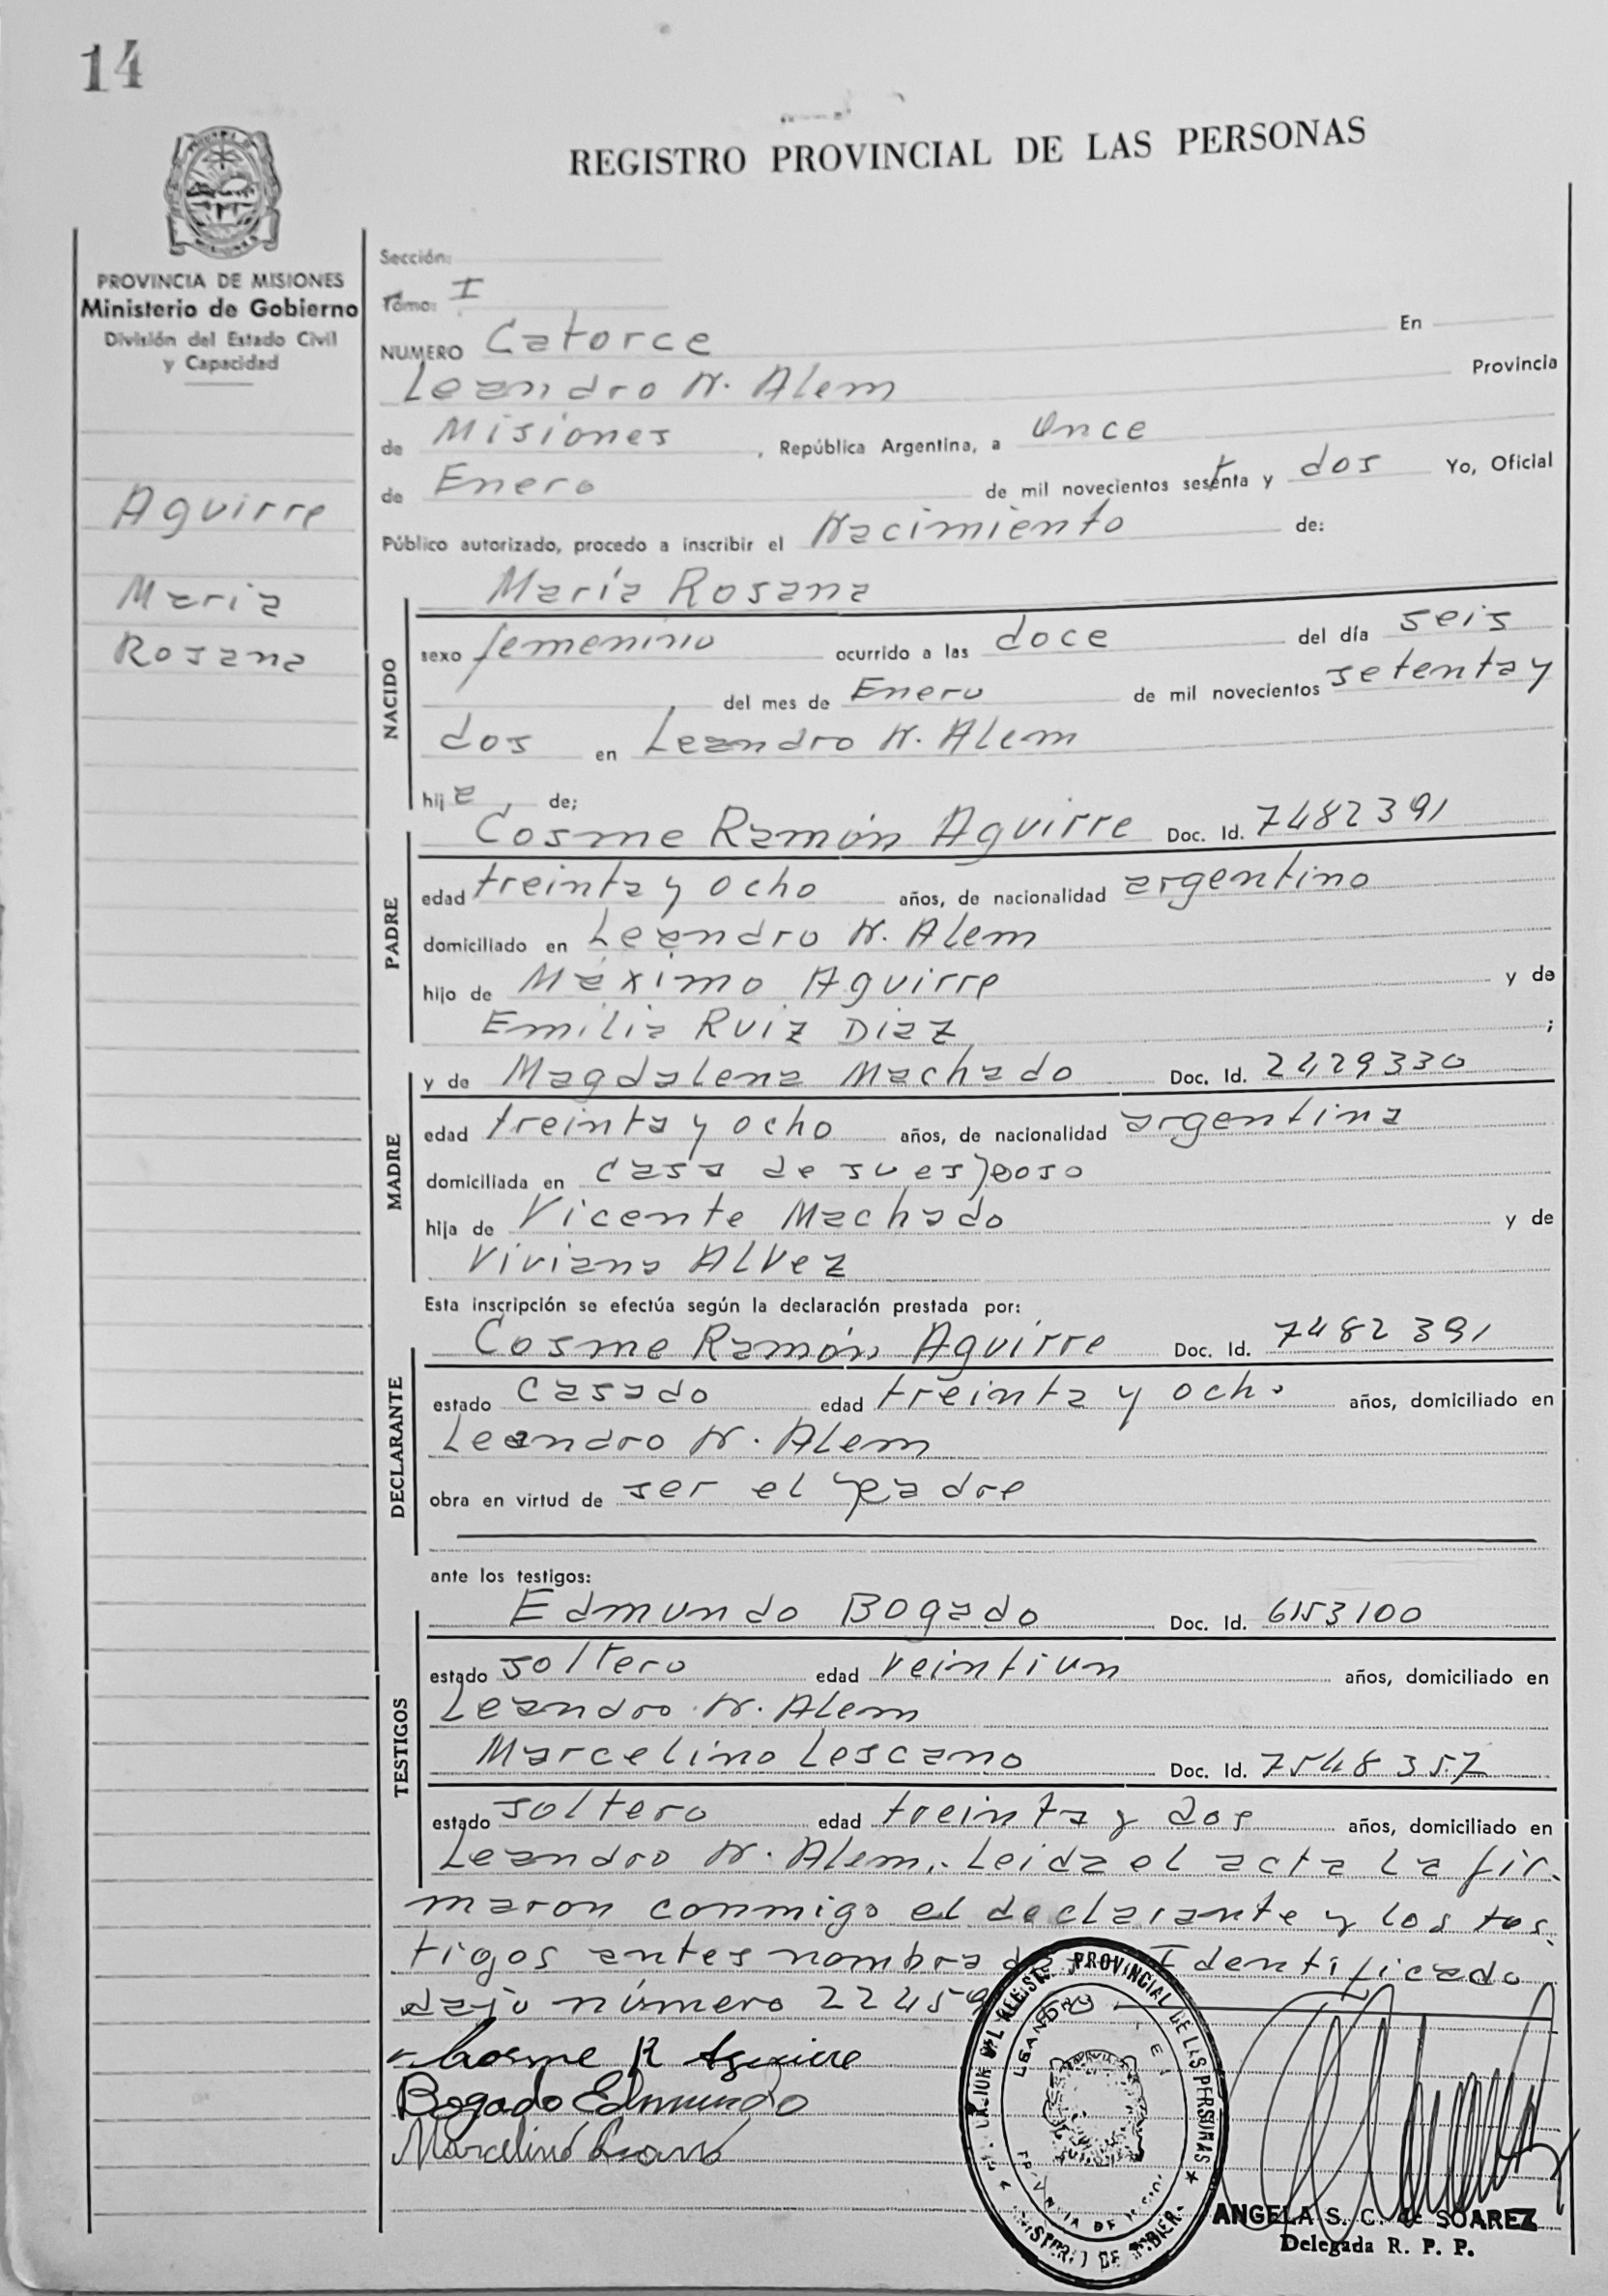 14
REGISTRO PROVINCIAL DE LAS PERSONAS
PROVINCIA DE MISIONES
Ministerio de Gobierno
División del Estado Civil
y Capacidad
Aguirre
Maria
Rosana
Sección:
Tomo: I
NUMERO Catorce En
Leandro N. Alem Provincia
de Misiones, República Argentina, a Once
de Enero de mil novecientos sesenta y dos Yo, Oficial
Público autorizado, procedo a inscribir el Nacimiento de:
NACIDO
María Rosana
sexo femenino ocurrido a las doce del día seis
del mes de Enero de mil novecientos setenta y
dos en Leandro N. Alem
hija de;
PADRE
Cosme Ramón Aguirre Doc. Id. 7482391
edad treinta y ocho años, de nacionalidad argentino
domiciliado en Leandro N. Alem
hijo de Máximo Aguirre y de
Emilia Ruiz Diaz ;
MADRE
y de Magdalena Machado Doc. Id. 2429330
edad treinta y ocho años, de nacionalidad argentina
domiciliada en casa de su esposo
hija de Vicente Machado y de
Viviana Alvez
Esta inscripción se efectúa según la declaración prestada por:
DECLARANTE
Cosme Ramón Aguirre Doc. Id. 7482391
estado casado edad treinta y ocho años, domiciliado en
Leandro N. Alem
obra en virtud de ser el padre
ante los testigos:
TESTIGOS
Edmundo Bogado Doc. Id. 6153100
estado soltero edad veintiun años, domiciliado en
Leandro N. Alem
Marcelino Lescano Doc. Id. 7548357
estado soltero edad treinta y dos años, domiciliado en
Leandro N. Alem.. Leida el acta la fir-
maron conmigo el declarante y los tes-
tigos antes nombrados Identificado
bajo número
Cosme R Aguirre
Bogado Edmundo
Marcelino
PROVINCIAL DE LAS PERSONAS
ANGELA S. C. de SOAREZ
Delegada R. P. P.